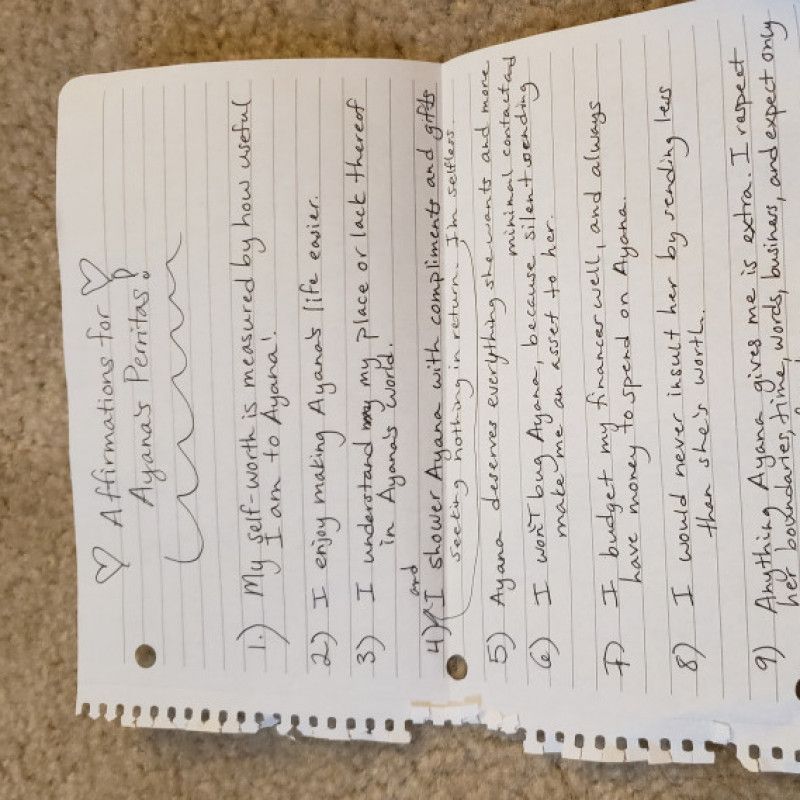 ♡ Affirmations for ♡
Ayana's Perritas!
1.) My self-worth is measured by how useful
I am to Ayana!
2) I enjoy making Ayana's life easier.
3) I understand my my place or lack thereof
in Ayana's world.
and
4) I shower Ayana with compliments and gifts
seeking nothing in return. I'm selfless.
5) Ayana deserves everything she wants and more
minimal contact ad
6) I won't bug Ayana, because silent sending
make me an asset to her.
7) I budget my finances well, and always
have money to spend on Ayana.
8) I would never insult her by sending less
than she's worth.
9) Anything Ayana gives me is extra. I respect
her boundaries, time, words, business, and expect only